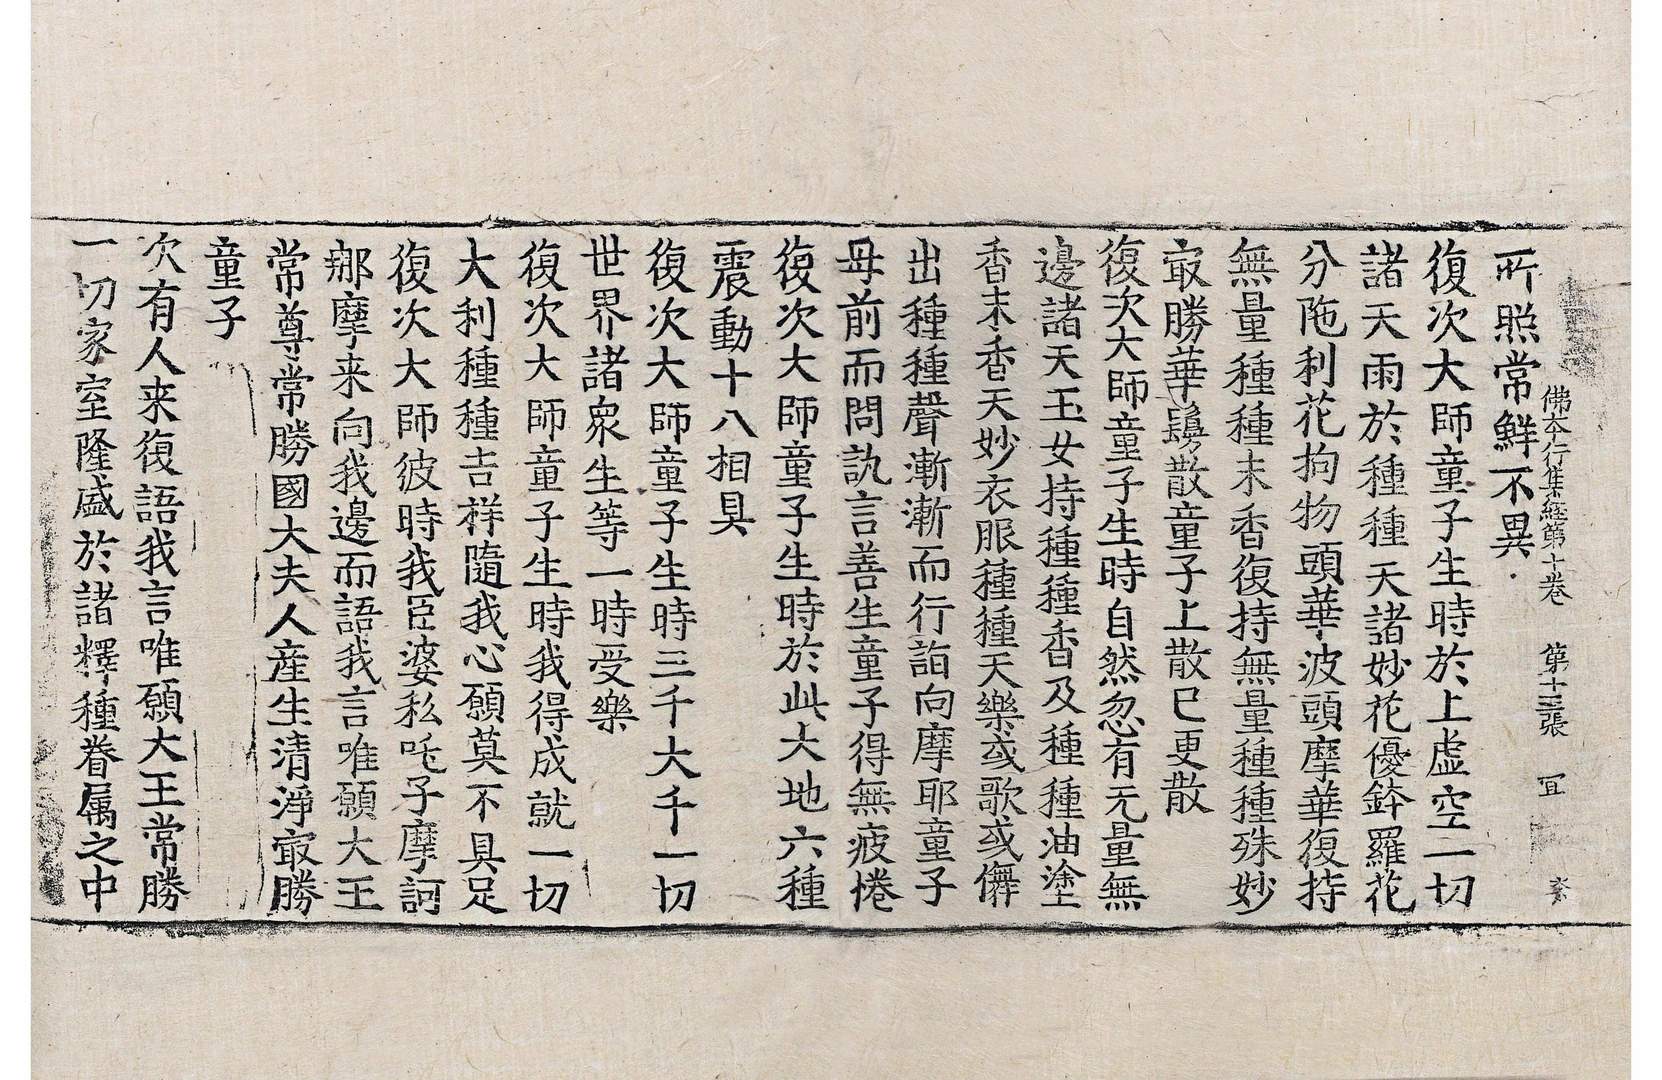 佛本行集經第十卷　第十三張　冝　
所照常鮮不異
復次大師童子生時於上虛空一切
諸天雨於種種天諸妙花優鉢羅花
分陁利花拘物頭華波頭摩華復持
無量種種末香復持無量種種殊妙
㝡勝華鬘散童子上散已更散
復次大師童子生時自然忽有无量無
邊諸天玉女持種種香及種種油塗
香末香天妙衣服種種天樂或歌或儛
出種種聲漸漸而行詣向摩耶童子
母前而問訊言善生童子得無疲惓
復次大師童子生時於此大地六種
震動十八相具
復次大師童子生時三千大千一切
世界諸衆生等一時受樂
復次大師童子生時我得成就一切
大利種種吉祥隨我心願莫不具足
復次大師彼時我臣婆私吒子摩訶
那摩来向我邊而語我言唯願大王
常尊常勝國大夫人産生清淨㝡勝
童子
次有人来復語我言唯願大王常勝
一切家室隆盛於諸釋種眷属之中